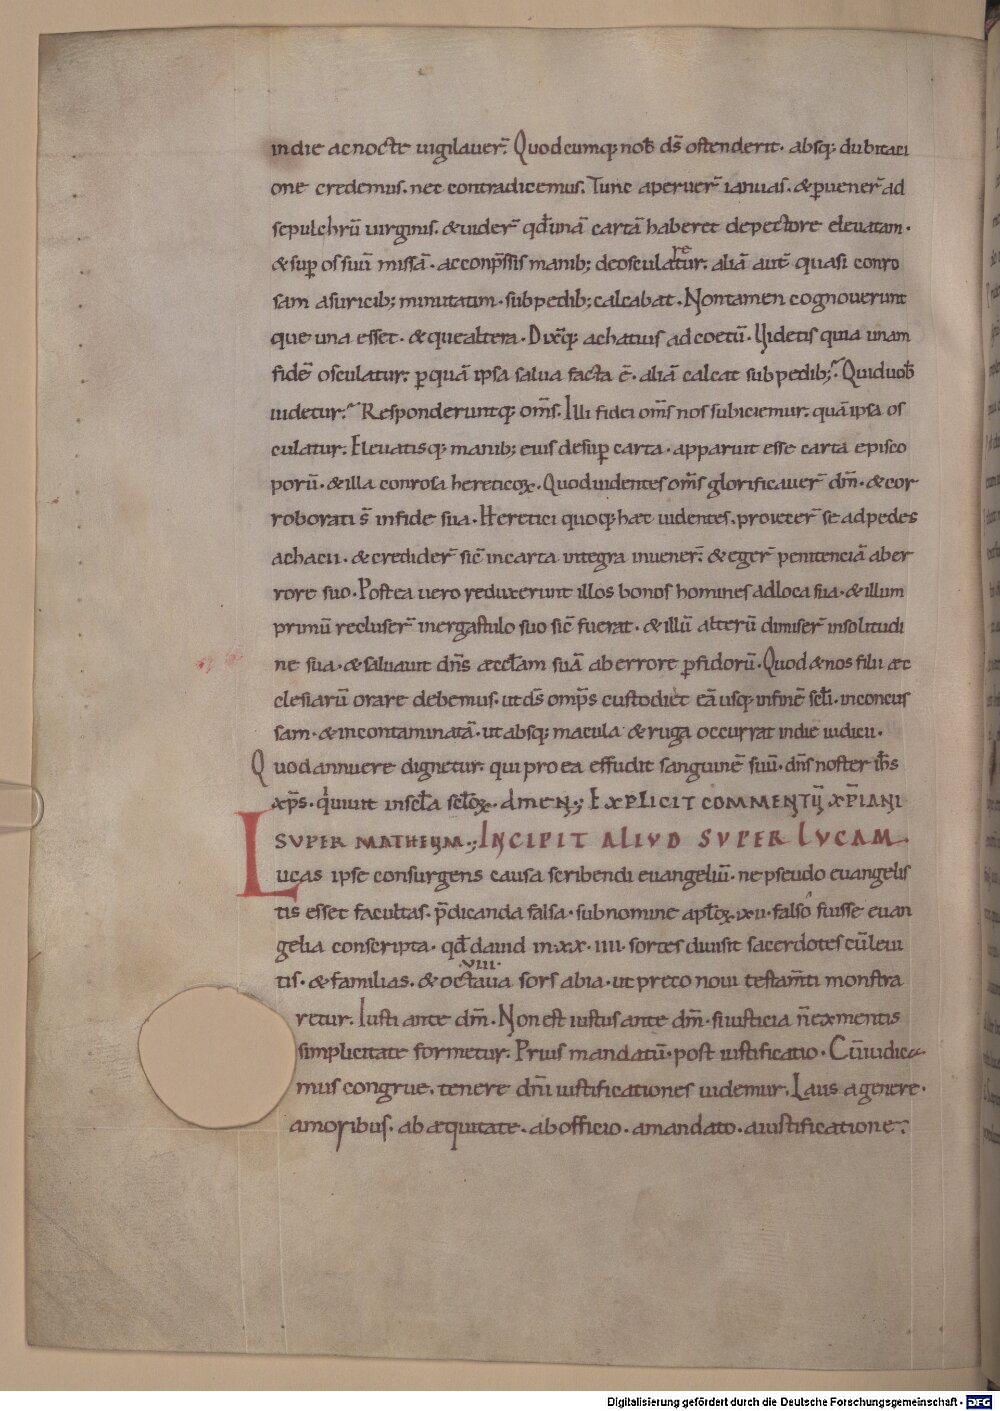 indie acnocte uigilauer̄. Quodcumq; nob̄ ds̄ ostenderit. absq; dubitati
one credemus. nec contradicemus. Tunc aperuer̄ ianuas. &ꝑuener̄ ad
sepulchrū uirginis. &uider̄ qd̄unā cartā haberet depectore eleuatam.
&suꝑ os suū missā. acconp̄ssis manib; deoscularetur. aliā autē quasi conro
sam asuricib; minutatim. subpedib; calcabat. Nontamen cognouerunt
que una esset. &quealtera. Dix̄q; achatius adcoetū. Uidetis quia unam
fidē osculatur. ꝑquā ipsa salua facta ē. aliā calcat subpedib;. Quiduob̄
uidetur. Responderuntq; om̄s. Illi fidei om̄s nos subiciemur. quā ipsa os
culatur. Eleuatisq; manib; eius desuꝑ carta. apparuit esse carta episco
porū. &illa conrosa hereticoꝝ. Quoduidentes om̄s glorificauer̄ dm̄. &cor
roborati s̄ infide sua. Heretici quoq; hæc uidentes. proiecer̄ se adpedes
achacii. &credider̄ sic̄ incarta integra inuener̄. &eger̄ penitenciā aber
rore suo. Postea uero reduxerunt illos bonos homines adloca sua. &illum
primū recluser̄ inergastulo suo sic̄ fuerat. &illū alterū dimiser̄ insolitudi
ne sua. &saluauit dn̄s æccl̄am suā aberrore ꝑfidorū. Quod&nos filii æc
clesiarū orare debemus. utds̄ omp̄s custodiet eā usq; infinē scl̄i. inconcus
sam. &incontaminatā. ut absq; macula &ruga occurrat indie iudicii.
Quodannuere dignetur. qui pro ea effudit sanguinē suū. dn̄s noster ih̄s
xp̄s. q̇uiuit inscl̄a scl̄oꝝ. Amen. Explicit commentū xp̄iani
super matheum. Incipit aliud super lucam.
Lucas ipse consurgens causa scribendi euangeliū. ne pseudo euangelis
tis esset facultas. p̄dicanda falsa. subnomine apl̄oꝝ .xii. falso fuisse euan
gelia conscripta. qd̄ dauid in .xx. iiii. sortes diuisit sacerdotes cū leui
.viii.
tis. &familias. &octaua sors abia. ut preco noui testam̄ti monstra
retur. Iusti ante dm̄. Nonest iustus ante dm̄. si iusticia n̄ exmentis
simplicitate formetur. Prius mandatū. post iustificatio. Cū iudica
mus congrue. tenere dn̄i iustificationes uidemur. Laus a genere.
amoribus. ab æquitate. ab officio. amandato. aiustificatione.
Digitalisierung gefördert durch die Deutsche Forschungsgemeinschaft - DFG